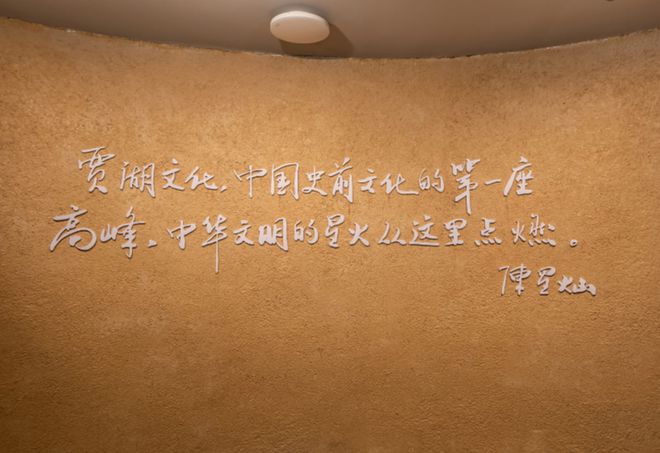 贾湖文化,中国史前文化的第一座
高峰,中华文明的星火从这里点燃。
陈星灿